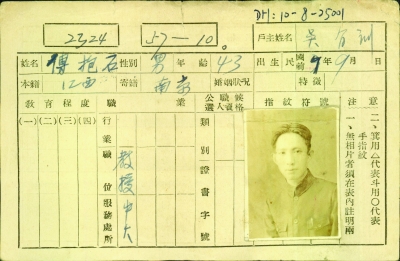 DH:10-8-25001
2324
57-10。
戶主姓名
姓名 傅抱石 性別 男 年齡 43 出生民國前 年 9 月 日
本籍 江西 寄籍 南京 婚姻狀況 特徵
教育程度 職業 公職候選人資格 指紋符號
(一)(二)(三)(四)
行業
職位 教授
服務處所 中大
類別
證書字號
注意
一、無相片者須在表內註明兩手指紋
二、箕用△代表斗用○代表